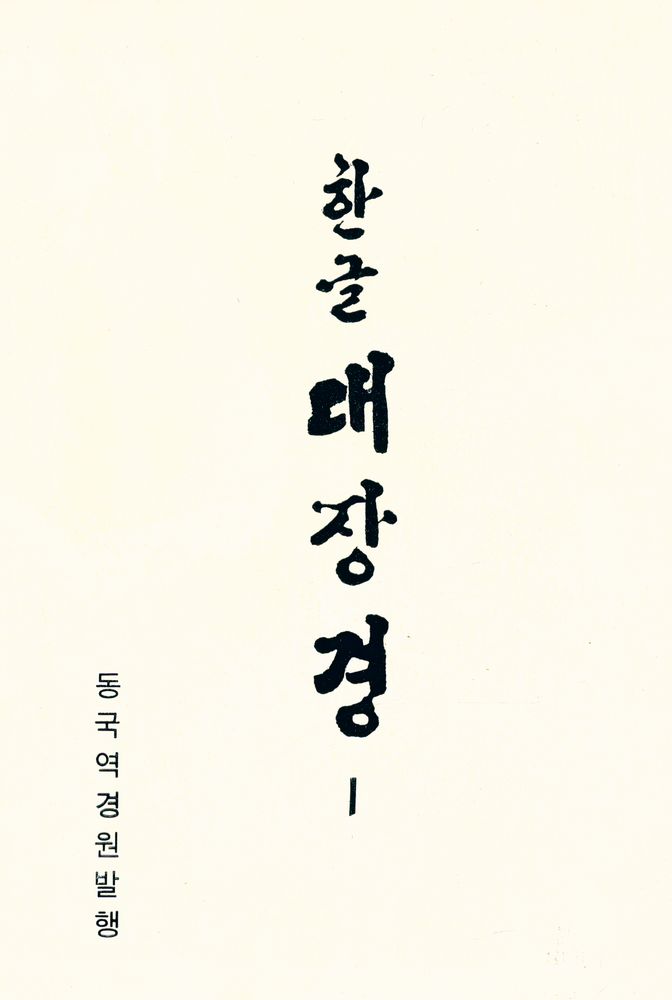 한글 대장경 1
동국역경원발행